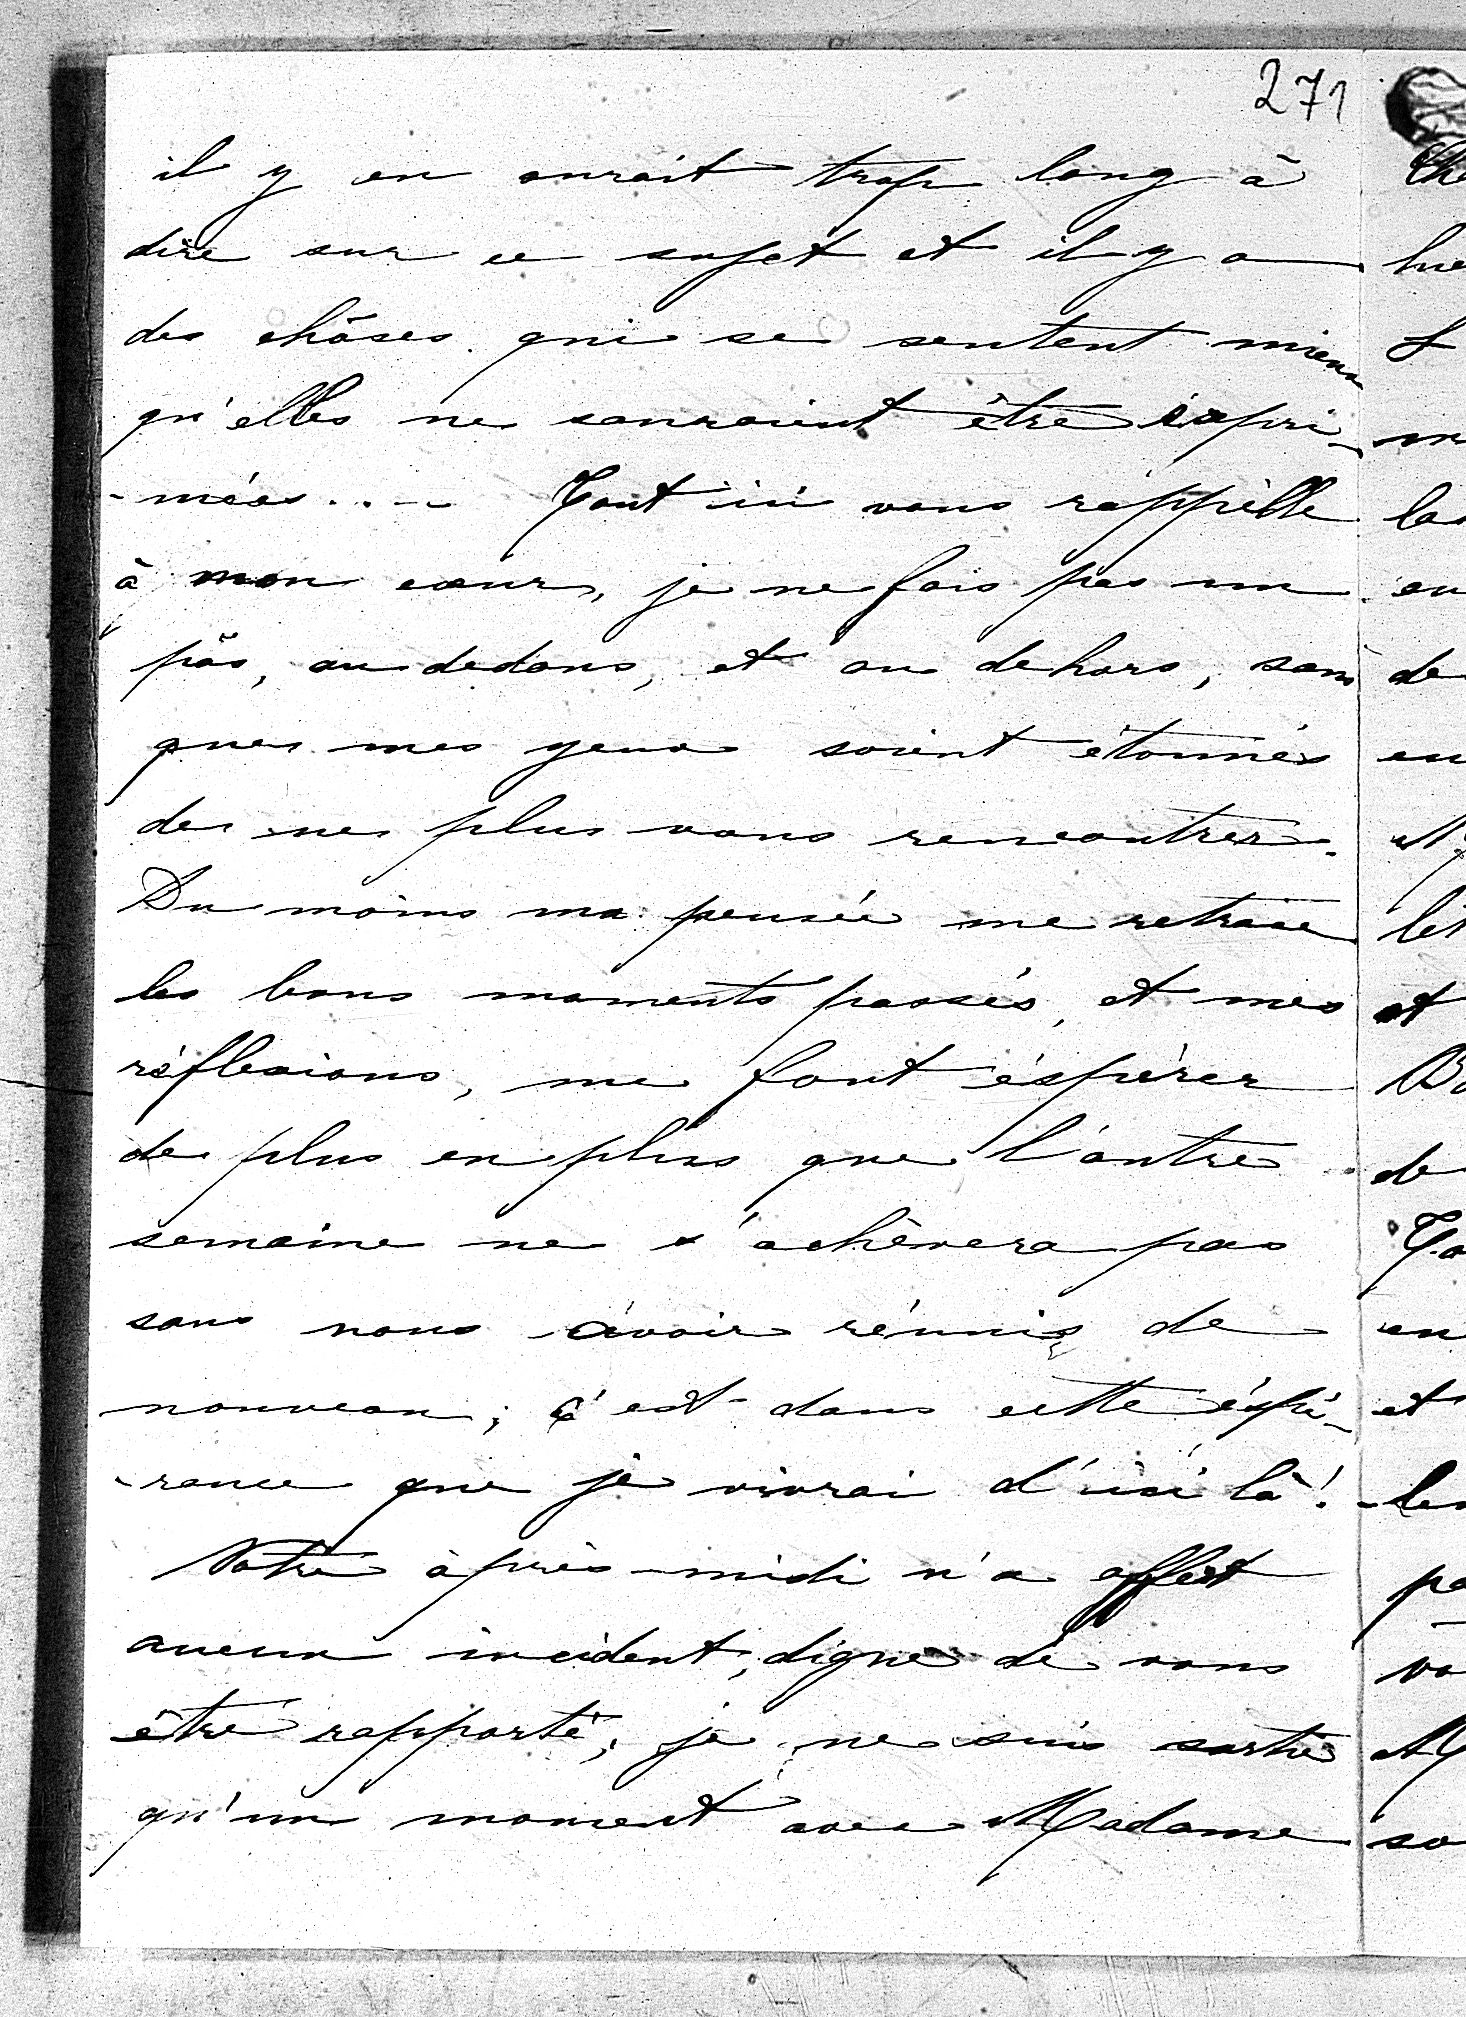 271
il y en aurait trop long à
dire sur ce sujet et il y a
des chôses qui se sentent mieux
qu'elles ne sauraient être expri-
-mées... Tout ici vous rappèlle
à mon cœur, je ne fais pas un
pâs, au dedans, et au dehors, sans
que mes yeux soient étonnés
de ne plus vous rencontrer.
Du moins ma pensée me retrace
les bons moments passés, et mes
réflexions, me font éspérer
de plus en plus que l'autre
semaine ne s'achèvera pas
sans nous avoir réunis de
nouveau; c'est dans cette éspé-
-rance que je vivrai d'ici là!
Notre après-midi n'a offert
aucun incident, digne de vous
être rapporté, je ne suis sortie
qu'un moment avec Madame